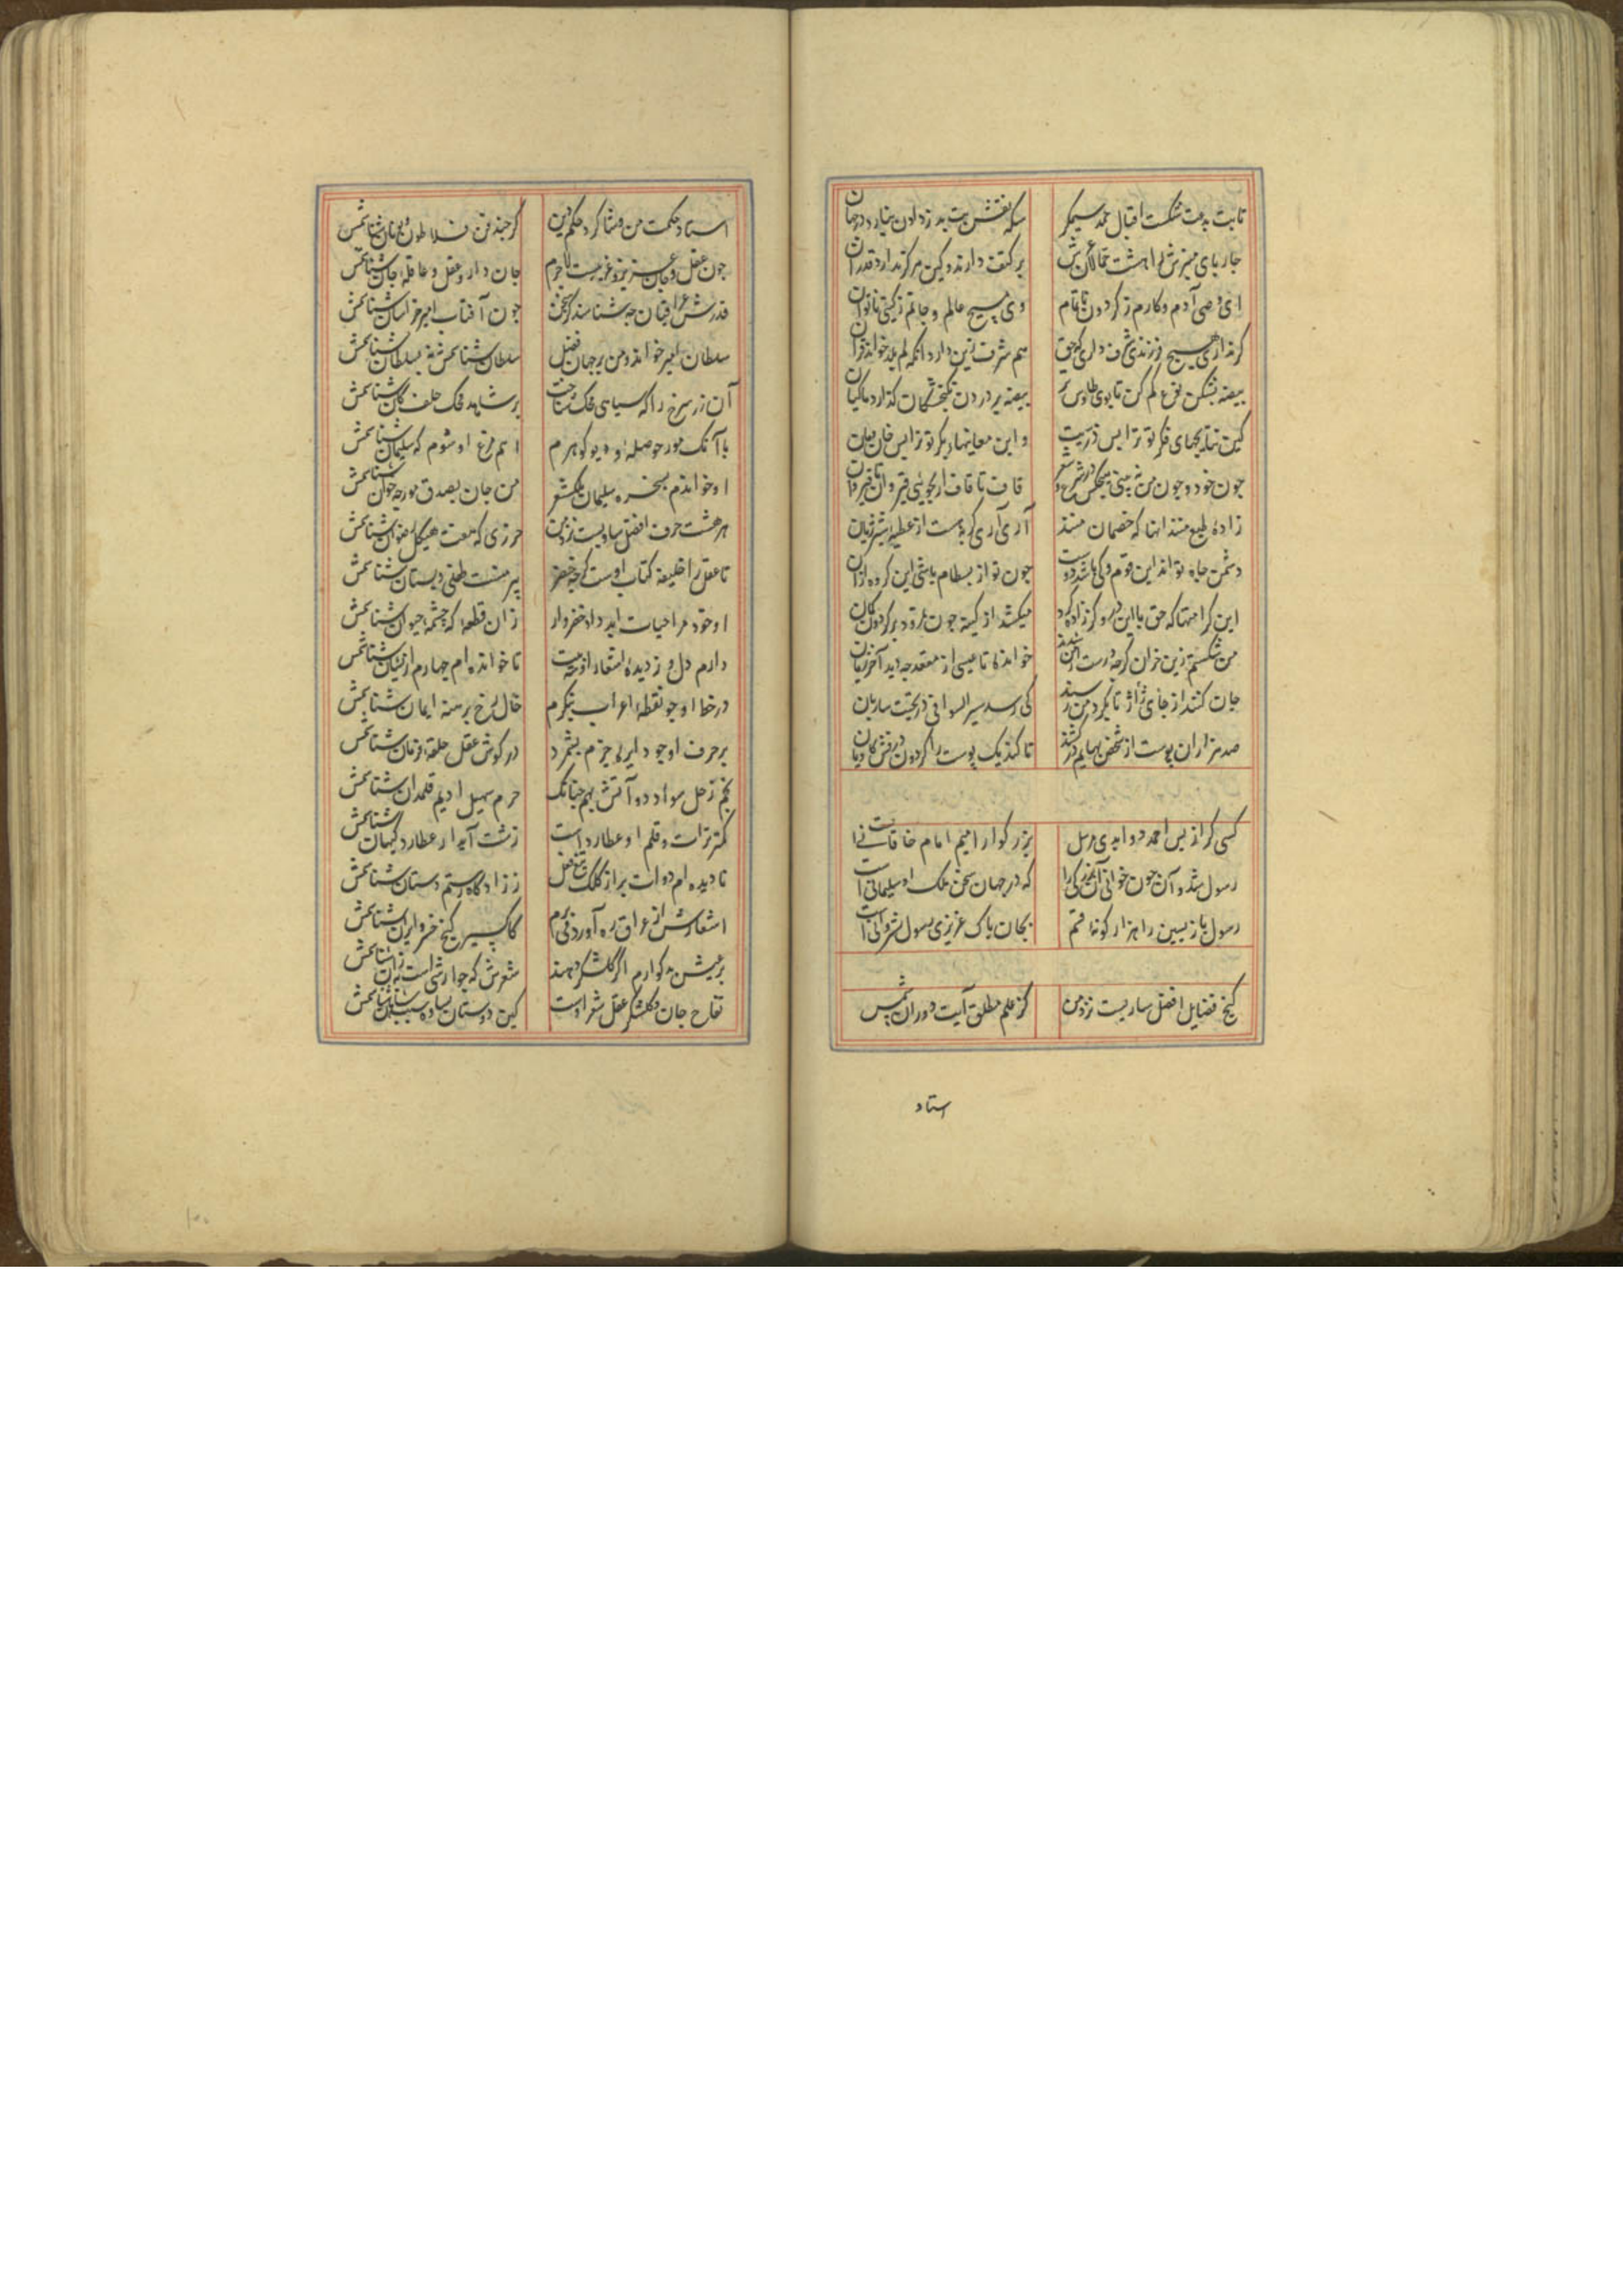 ثابت بدعت شکست اقبال محمد سیمکر سکه نقشش بت بدزد لون نیارد در جهان
چار پای منبرش را هشت حمالان عرش بر کتف دارند و کین مرکز ندارد قدر آن
ای وصی آدم و کارم ز کردون ناتمام وی مسیح عالم و جانم ز کیتی ناتوان
کر نداری هیچ فرزندی شرف داری که حق هم شرف زین دارد انکه لم یلد خواند قرآن
بیضه بشکن نوع کم کن تا بوی طاوس نر بیضه پروردن بکنجشکان کذار و ماکیان
کین نتایجهای فکر تو ترا بس ذریت و این معانیهای بکر تو ترا بس خان مان
جون خود و جون من نبینی هیجکس در شرع و شعر قاف تا قاف ار بجویی قیروان تا قیروان
زاده طبع منند انها که خصمان منند آری آری کربه هست از عطسه شیر ژیان
دشمن جاه تو اند این قوم و کی باشند دوست جون تو از بسطام باشی این کروه از
این کرامتها که حق با این دروکر زاده کرد میکشد از کینه جون نمرود بر کردون کمان
من شکستم زین خران کرجه درست از من شدند خواندهٔ تا عیسی از مقعد جه دید آخر زمان
جان کنند از جای ژاژ تا بکرد من رسند کی رسد سیر السوانی در نجیب ساربان
صد هزاران پوست از شخص بهایم برکشند تا کند یک پوست را کردون درفش کاویان
کسی کز از پس احمد دوا بدی مرسل بزرکوار امیم امام خاقانی است
رسول شد و آن جون خوانی آن بزرکی را که در جهان سخن ملک او سلیمانی است
رسول باز پسین را هزار کونه قسم بجان باک عزیزی رسول شروانی است
کنج فضایل افضل ساویست نزد من کز علم مطلق آیت دوران
استاد
استاد حکمت من و شاکرد حکم دین کر جند من فلاطون یونان شناسمش
جون عقل و جان عزیز و غریبست لاجرم جان دار و عقل و عاقله جان شناسمش
قدرش عراقیان جه شناسند کز سخن جون آفتاب امیر خراسان شناسمش
سلطان امیر خواند و من بر جهان فضل سلطان شناسمش نه بسلطان شناسمش
آن زر سرخ را که سیاهی محک شناخت بر شاهد محک خلف کان شناسمش
با آنک مور حوصله او دیو کوهرم اسم مرغ او شوم که سلیمان شناسمش
او خواندم بسخره سلیمان ملک شعر من جان بصدق مورجه خوان شناسمش
هر هشت حرف افضل ساویست نزد من حرزی که هفت هیکل رضوان شناسمش
تا عقل را خلیفه کتاب اوست کرجه خضر پیر منست طفل دبستان شناسمش
او خود مرا حیات ابد داد خضروار زان قطعه که چشمه حیوان شناسمش
دارم دل و ز دیدهٔ اشعار او بیت تا خوانده‌ام جهارم ازیشان شناسمش
در خط او جو نقطه و اعراب بنکرم خال رخ برهنه ایمان شناسمش
بر حرف او جو دایره جزم بشمرد در کوش عقل حلقهٔ فرمان شناسمش
نجم زحل سواد دو آتش نهم جنانک جرم سهیل ادیم قلمدان شناسمش
کمتر تراش قلم او عطارد است زشت آید ار عطارد کیهان شناسمش
تا دیده‌ام دوات پر از کلک تیغ فعل ززادکاه رستم دستان شناسمش
اشعارش از عراق ره آورد می‌برم کاکسیر کنج خسرو ایران شناسمش
بر میش بدکوارم اکر کلشکر دهند شعرش که جوارشی است به از آن شناسمش
تفاح جان و کلشکر عقل شعر اوست کین دوستان ساوه سپاهان شناسمش